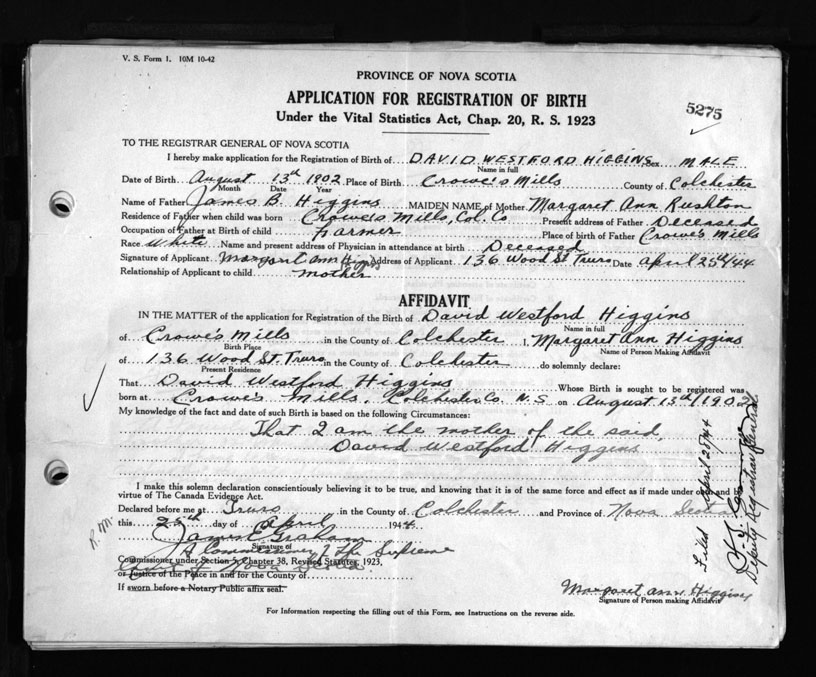 V. S. Form 1. 10M 10-42
PROVINCE OF NOVA SCOTIA
APPLICATION FOR REGISTRATION OF BIRTH
5275
Under the Vital Statistics Act, Chap. 20, R. S. 1923
TO THE REGISTRAR GENERAL OF NOVA SCOTIA
I hereby make application for the Registration of Birth of DAVID WESTFORD HIGGINS Sex MALE
Name in full
Date of Birth August 13th 1902 Place of Birth Crowe's Mills County of Colchester
Month Date Year
Name of Father James B. Higgins MAIDEN NAME of Mother Margaret Ann Rushton
Residence of Father when child was born Crowe's Mills, Col. Co. Present address of Father Deceased
Occupation of Father at Birth of child farmer Place of birth of Father Crowe's Mills
Race White Name and present address of Physician in attendance at birth Deceased
Signature of Applicant Margaret Ann Higgins Address of Applicant 136 Wood St Truro Date April 25th/44
Relationship of Applicant to child mother
AFFIDAVIT
IN THE MATTER of the application for Registration of the Birth of David Westford Higgins
Name in full
of Crowe's Mills in the County of Colchester I, Margaret Ann Higgins
Birth Place Name of Person Making Affidavit
of 136 Wood St. Truro in the County of Colchester do solemnly declare:
Present Residence
That David Westford Higgins Whose Birth is sought to be registered was
born at Crowe's Mills, Colchester Co. N.S. on August 13th/1902
My knowledge of the fact and date of such Birth is based on the following Circumstances:
That I am the mother of the said,
David Westford Higgins
I make this solemn declaration conscientiously believing it to be true, and knowing that it is of the same force and effect as if made under oath and by
virtue of The Canada Evidence Act.
Declared before me at Truro in the County of Colchester and Province of Nova Scotia
this 25th day of April 1944
James E Graham
Signature of
A Commissioner of The Supreme
Commissioner under Section 5, Chapter 38, Revised Statutes, 1923,
Court of Nova Scotia
or Justice of the Peace in and for the County of
If sworn before a Notary Public affix seal.
Margaret Ann Higgins
Signature of Person making Affidavit
For Information respecting the filling out of this Form, see Instructions on the reverse side.
Filed April 28/44
Deputy Registrar General